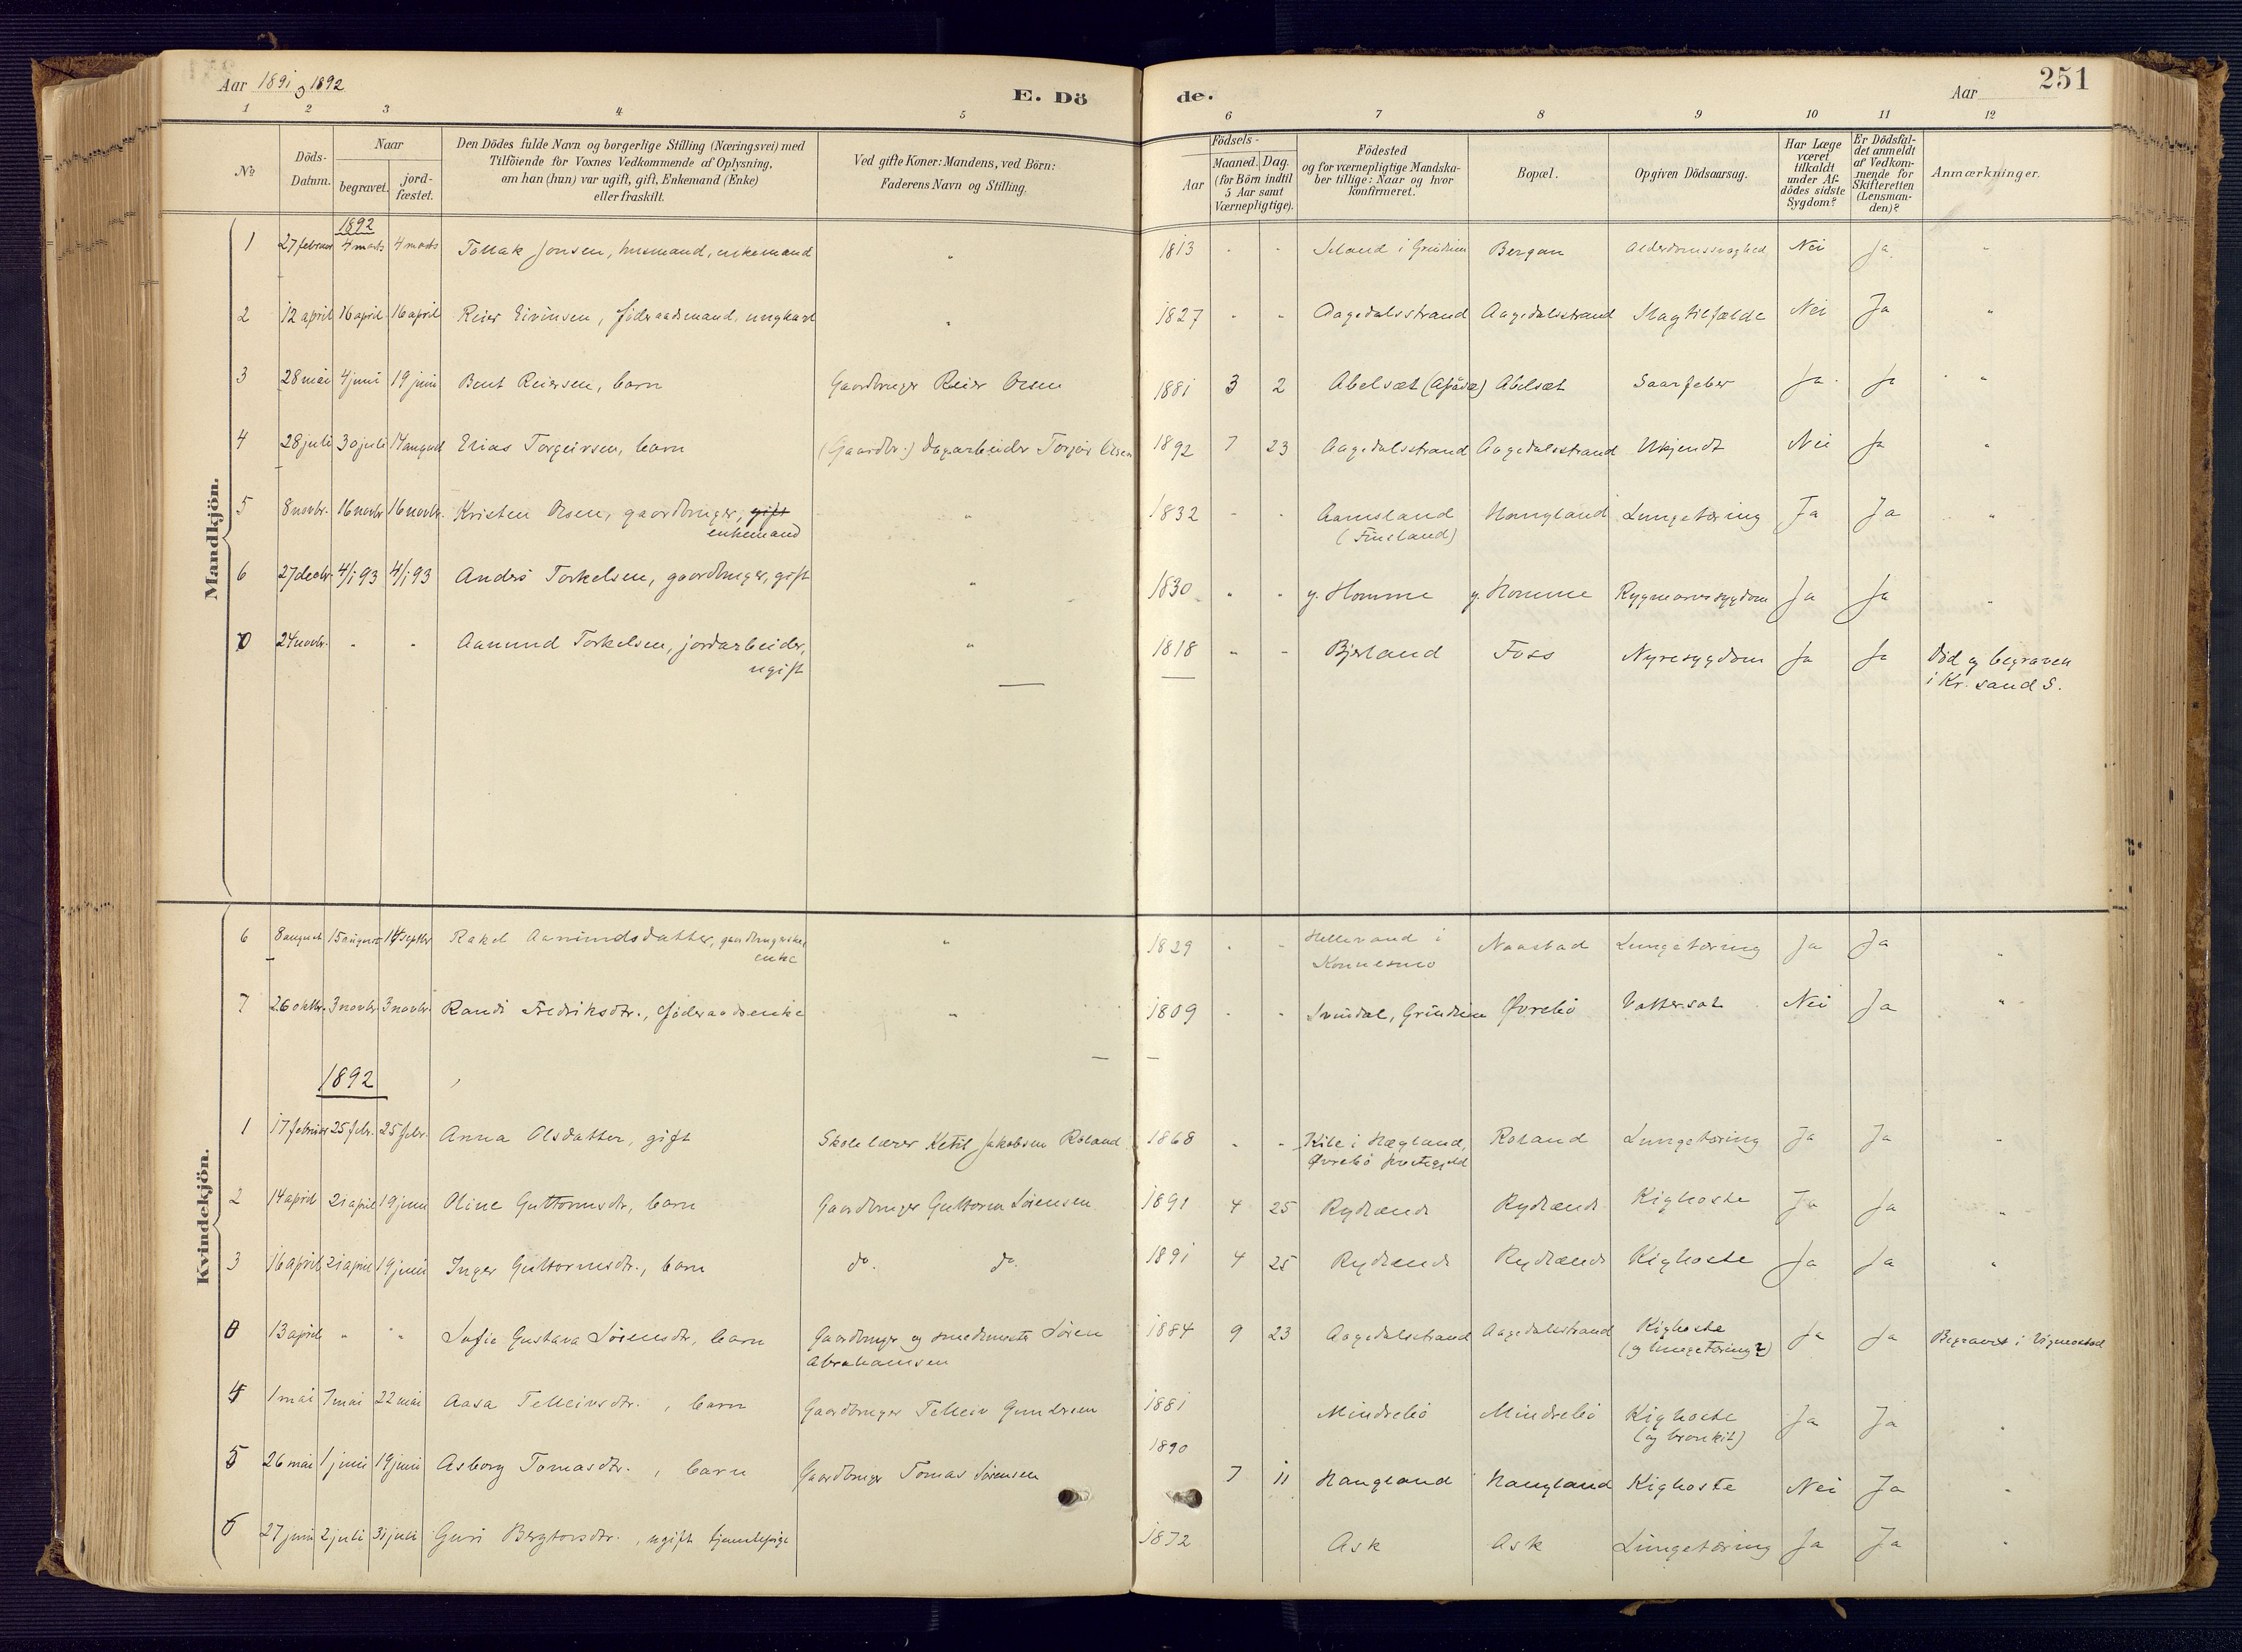 Aar 1891 og 1892
E. Dö de.
Aar
251
1 2 3 4 5 6 7 8 9 10 11 12
№
Döds-Datum.
Naar
begravet.
jord-fæstet.
Den Dödes fulde Navn og borgerlige Stilling (Næringsvei) med
Tilföiende for Voxnes Vedkommende af Oplysning,
om han (hun) var ugift, gift, Enkemand (Enke)
eller fraskilt.
Ved gifte Koner: Mandens, ved Börn:
Faderens Navn og Stilling.
Födsels-
Aar
Maaned. Dag.
(for Börn indtil
5 Aar samt
Værnepligtige).
Födested
og for værnepligtige Mandska-
ber tillige: Naar og hvor
konfirmeret.
Bopæl.
Opgiven Dödsaarsag.
Har Læge
været
tilkaldt
under Af-
dödes sidste
Sygdom?
Er Dödsfal-
det anmeldt
af Vedkom-
mende for
Skifteretten
(Lensman-
den)?
Anmærkninger.
Mandkjön.
1892
1 27 februar 4 marts 4 marts Tollak Jonsen, husmand, enkemand " 1813 - - Iland i Grindum Bergan Alderdomssvaghed Nei Ja "
2 12 april 16 april 16 april Reier Eivinsen, föderaadsmand, ungkarl " 1827 - - Aagedalsstrand Aagedalsstrand Slagtilfælde Nei Ja "
3 28 mai 4 juni 19 juni Bent Reiersen, barn Gaardbruger Reier Olsen 1881 3 2 Abelsæt Abelsæt Saarfeber Ja Ja "
4 28 juli 30 juli 14 august Elias Torgeirsen, barn (Gaardbr.) Dagarbeider Torgeir Olsen 1892 7 23 Aagedalsstrand Aagedalsstrand Ukjendt Nei Ja "
5 8 novbr. 16 novbr 16 novbr. Kristen Olsen, gaardbruger, gift " 1832 - - Aamsland Haugland Lungetæring Ja Ja "
enkemand (Finsland)
6 27 decbr. 4/1 93 4/1 93 Anders Torkelsen, gaardbruger, gift " 1830 - - y. Homme y. Homme Rygmarvssygdom Ja Ja "
0 24 novbr. - - Aanund Torkelsen, jordarbeider, " 1818 - - Bjerland Foss Nyresygdom Ja Ja Död og begraven
ugift i Kr. sand S.
Kvindekjön.
6 8 august 15 august 14 septbr Rakel Aanundsdatter, gaardbrugerske, " 1829 - - Hellevand i Naastad Lungetæring Ja Ja "
enke Konnesmo
7 26 oktbr. 3 novbr 3 novbr. Randi Fredriksdtr., föderaadsenke " 1809 - - Svindal, Grindum Øvrebö Vattersot Nei Ja "
1892
1 17 februar 25 febr. 25 febr. Anna Olsdatter, gift Skolelærer Ketil Jakobsen Roland 1868 - - Kile i Hægland, Roland Lungetæring Ja Ja "
Øvrebö prestegjeld
2 14 april 21 april 19 juni Oline Guttormsdtr, barn Gaardbruger Guttorm Sörensen 1891 4 25 Rydland Rydland Kighoste Ja Ja "
3 16 april 21 april 19 juni Inger Guttormsdtr., barn do. do. 1891 4 25 Rydland Rydland Kighoste Ja Ja "
0 13 april " " Sofie Gustava Sörensdtr, barn Gaardbruger og smedemester Sören 1884 9 23 Aagedalsstrand Aagedalsstrand Kighoste Ja Ja Begravet i Vigmostad
Abrahamsen (og lungetæring?)
4 1 mai 7 mai 22 mai Aasa Telleivsdtr., barn Gaardbruger Telleiv Gundersen 1881 Mindrebö Mindrebö Kighoste Ja Ja "
(og bronkit)
5 26 mai 1 juni 19 juni Asborg Tomasdtr., barn Gaardbruger Tomas Sörensen 1890 7 11 Haugland Haugland Kighoste Nei Ja "
6 27 juni 2 juli 31 juli Guri Bergtorsdtr., ugift tjenestepige 1872 Ask Ask Lungetæring Ja Ja "